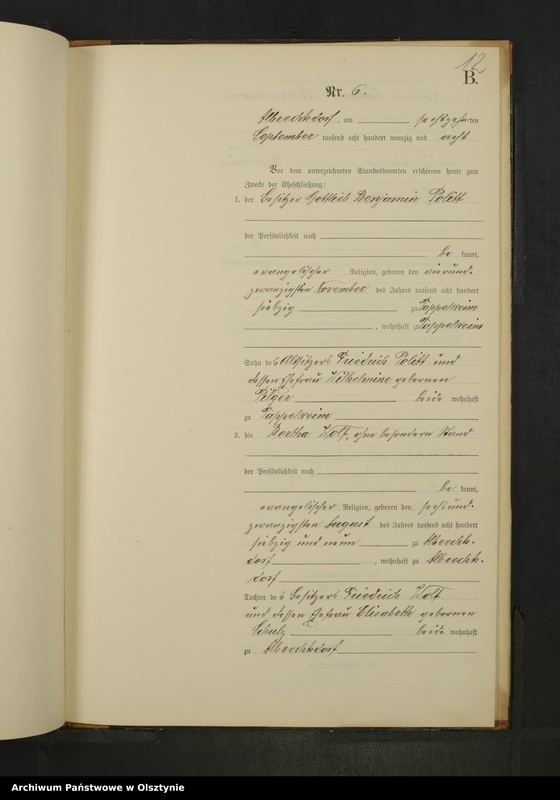 12
B.
Nr. 6.
Albrechtsdorf, am sechszehnten
September tausend acht hundert neunzig und acht
Vor dem unterzeichneten Standesbeamten erschienen heute zum
Zwecke der Eheschließung:
1. der Besitzer Gottlieb Benjamin Politt
der Persönlichkeit nach
be kannt,
evangelischer Religion, geboren den vierund-
zwanzigsten November des Jahres tausend acht hundert
siebzig zu Tappelkeim
, wohnhaft zu Tappelkeim
Sohn des Altsitzers Friedrich Politt und
dessen Ehefrau Wilhelmine geborenen
Pilger beide wohnhaft
zu Tappelkeim
2. die Bertha Wolf, ohne besondern Stand
der Persönlichkeit nach
be kannt,
evangelischer Religion, geboren den sechsund-
zwanzigsten August des Jahres tausend acht hundert
siebzig und neun zu Albrechts-
dorf , wohnhaft zu Albrechts-
dorf
Tochter des Besitzers Friedrich Wolf
und dessen Ehefrau Elisabeth geborenen
Schulz beide wohnhaft
zu Albrechtsdorf
Archiwum Państwowe w Olsztynie